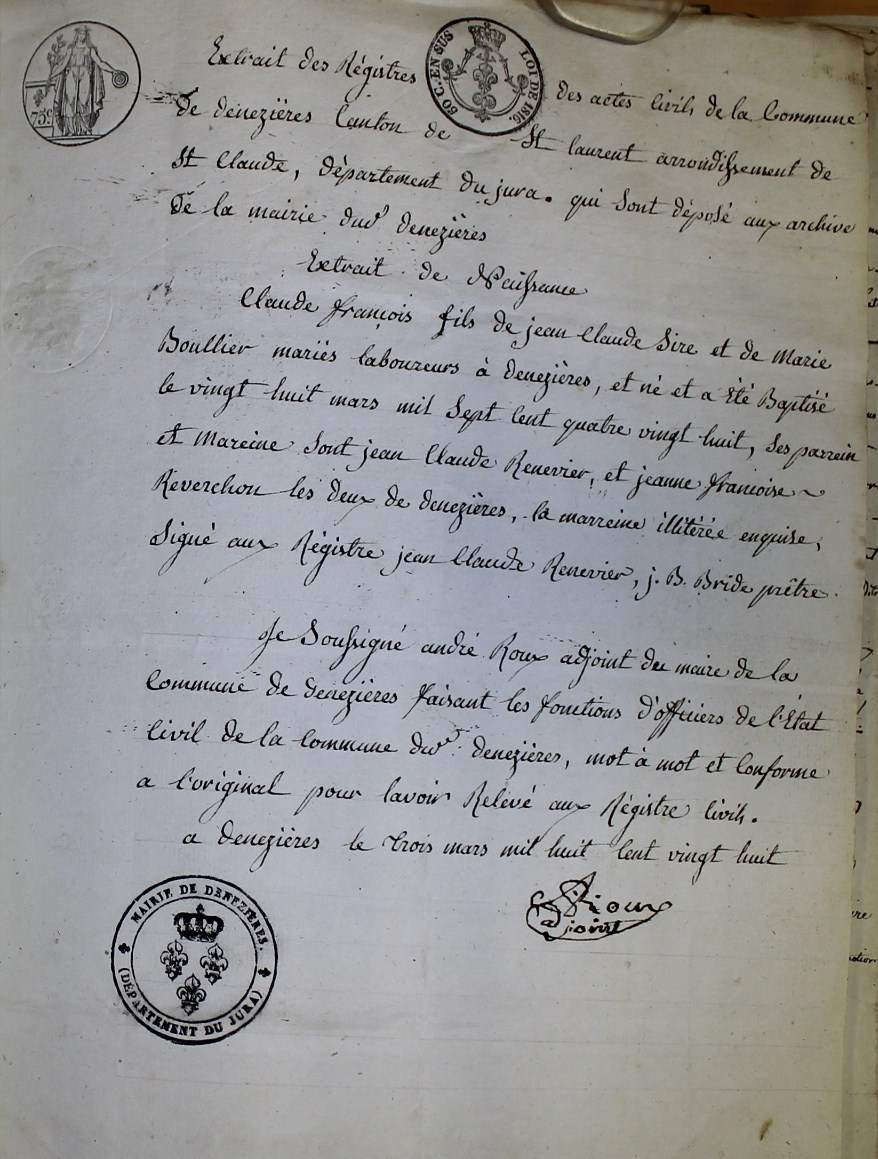 75c
50 C. EN SUS
LOI DE 1816.
Extrait des Régistres des actes Civils de la Commune
de denezières Canton de St laurent arrondissement de
St Claude, département du jura. qui sont déposé aux archive
de la mairie dud denezières
Extrait de Naissance
Claude françois fils de jean Claude Sire et de Marie
Boullier mariés laboureurs à denezières, et né et a Été Baptisé
le vingt huit mars mil Sept Cent quatre vingt huit, Ses parrein
et Mareine Sont jean Claude Renevier, et jeanne francoise
Reverchon les deux de denezières, la marreine illitérée enquise,
Signé aux Régistre jean Claude Renevier, j. B. Bride prêtre.
Je Soussigné andré Roux adjoint du maire de la
Commune de denezières faisant les fonctions d'officiers de l'État
Civil de la Commune dud denezières, mot à mot et Conforme
a l'original pour lavoir Relevé aux Régistre Civils.
a denezières le trois mars mil huit Cent vingt huit
Roux
adjoint
MAIRIE DE DENEZIÈRES.
(DÉPARTEMENT DU JURA)